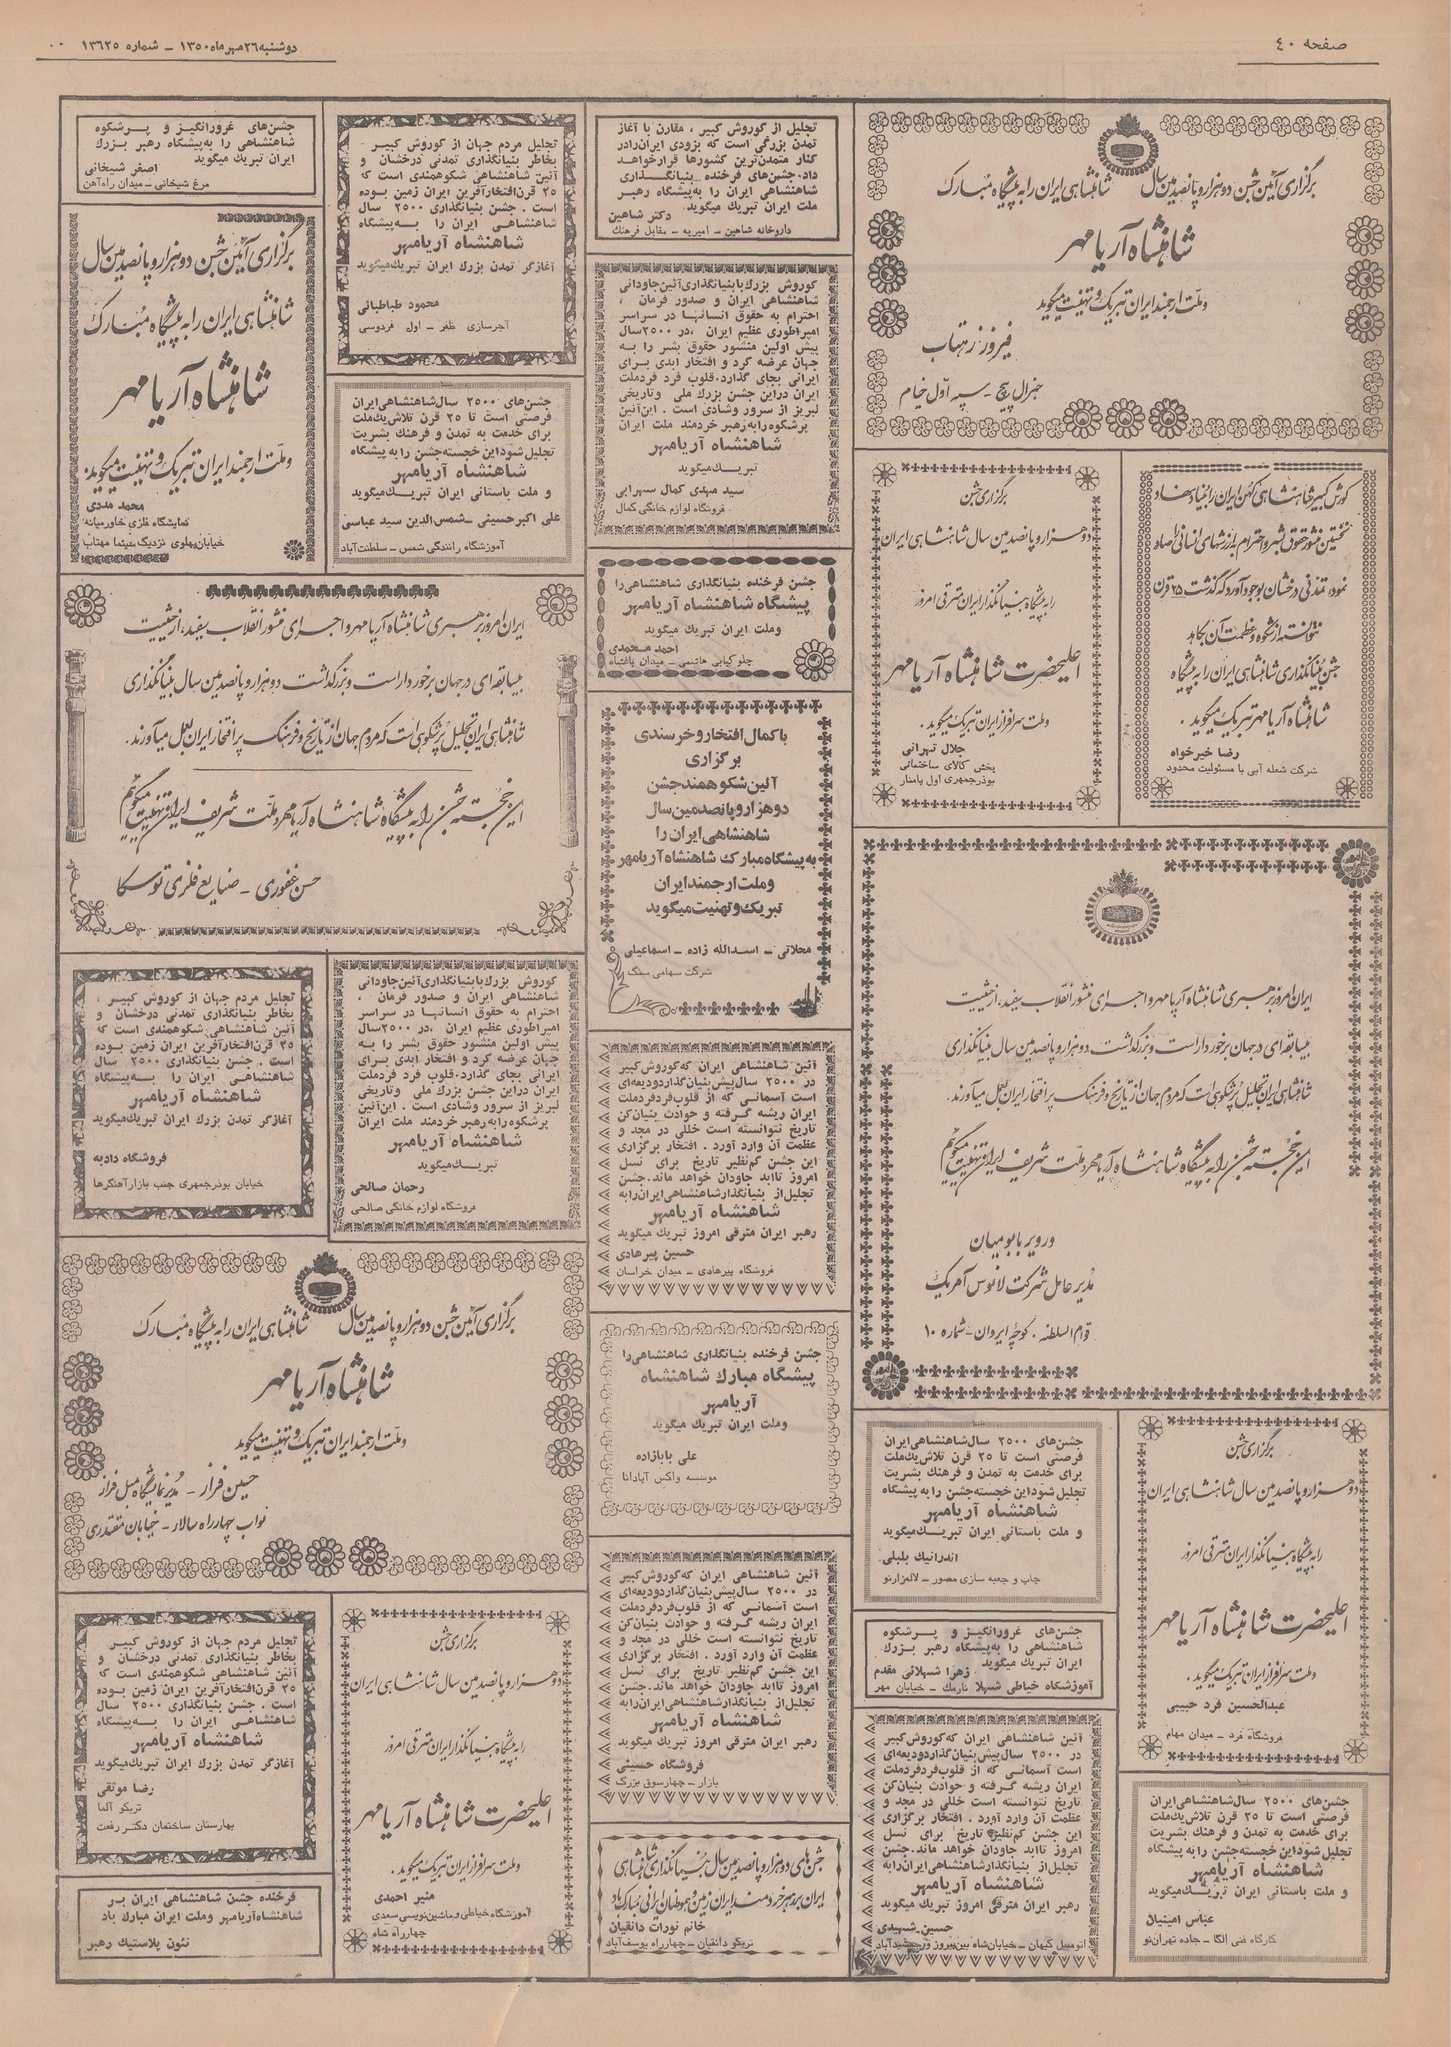 صفحه ۴۰
دوشنبه ۲۶ مهر ماه ۱۳۵۰ – شماره ۱۳۶۲۵
برگزاری آئین جشن دو هزار و پانصدمین سال شاهنشاهی ایران را به پیشگاه مبارک
شاهنشاه آریامهر
و ملت ارجمند ایران تبریک و تهنیت میگوید
فیروز زهتاب
جنرال پیچ - سپه اول خیام
کورش کبیر شاهنشاهی کهن ایران را بنیاد نهاد و
نخستین منشور حقوق بشر و احترام به ارزشهای انسانی را صادر
نمود، تمدنی درخشان بوجود آورد که گذشت ۲۵ قرن
نتوانسته از شکوه و عظمت آن بکاهد
جشن بنیانگذاری شاهنشاهی ایران را به پیشگاه
شاهنشاه آریامهر تبریک میگوید.
رضا خیرخواه
شرکت شعله آبی با مسئولیت محدود
برگزاری جشن
دو هزار و پانصدمین سال شاهنشاهی ایران
را به پیشگاه بنیانگذار ایران مترقی امروز
اعلیحضرت شاهنشاه آریامهر
و ملت سرافراز ایران تبریک میگوید.
جلال تهرانی
پخش کالای ساختمانی
بوذرجمهری اول پامنار
ایران امروز برهبری شاهنشاه آریامهر و اجرای منشور انقلاب سفید، از حیثیت
بیسابقه‌ای در جهان برخوردار است و بزرگداشت دو هزار و پانصدمین سال بنیانگذاری
شاهنشاهی ایران تجلیل پرشکوهی است که مردم جهان از تاریخ و فرهنگ پر افتخار ایران بعمل میآورند.
این خجسته جشن را به پیشگاه شاهنشاه آریامهر و ملت شریف ایران تهنیت میگویم
ورویر بابومیان
مدیر عامل شرکت لانوس آمریک
قوام السلطنه . کوچه ایروان - شماره ۱۰
برگزاری جشن
دو هزار و پانصدمین سال شاهنشاهی ایران
را به پیشگاه بنیانگذار ایران مترقی امروز
اعلیحضرت شاهنشاه آریامهر
و ملت سرافراز ایران تبریک میگوید.
عبدالحسین فرد حبیبی
فروشگاه فرد – میدان مهام
جشن‌های ۲۵۰۰ سال شاهنشاهی ایران
فرصتی است تا ۲۵ قرن تلاش یک ملت
برای خدمت به تمدن و فرهنگ بشریت
تجلیل شود این خجسته جشن را به پیشگاه
شاهنشاه آریامهر
و ملت باستانی ایران تبریک میگوید
عباس امینیان
کارگاه فنی الگا – جاده تهران نو
جشن‌های ۲۵۰۰ سال شاهنشاهی ایران
فرصتی است تا ۲۵ قرن تلاش یک ملت
برای خدمت به تمدن و فرهنگ بشریت
تجلیل شود این خجسته جشن را به پیشگاه
شاهنشاه آریامهر
و ملت باستانی ایران تبریک میگوید
اندرانیک بلبلی
چاپ و جعبه سازی مصور – لاله‌زارنو
جشن‌های غرورانگیز و پرشکوه
شاهنشاهی را به پیشگاه رهبر بزرگ
ایران تبریک میگوید
زهرا شهلائی مقدم
آموزشگاه خیاطی شهلا نارمک – خیابان مهر
آئین شاهنشاهی ایران که کوروش کبیر
در ۲۵۰۰ سال پیش بنیان گذارد ودیعه‌ای
است آسمانی که از قلوب فرد فرد ملت
ایران ریشه گرفته و حوادث بنیان کن
تاریخ نتوانسته است خللی در مجد و
عظمت آن وارد آورد . افتخار برگزاری
این جشن کم‌نظیر تاریخ برای نسل
امروز تا ابد جاودان خواهد ماند. جشن
تجلیل از بنیانگذار شاهنشاهی ایران را به
شاهنشاه آریامهر
رهبر ایران مترقی امروز تبریک میگوید
حسین شهیدی
اتومبیل کیهان – خیابان شاه بین پیروز و جمشیدآباد
تجلیل از کوروش کبیر ، مقارن با آغاز
تمدن بزرگی است که بزودی ایران را در
کنار متمدن‌ترین کشورها قرار خواهد
داد. جشن‌های فرخنده بنیانگذاری
شاهنشاهی ایران را به پیشگاه رهبر
ملت ایران تبریک میگوید.
دکتر شاهین
داروخانه شاهین – امیریه – مقابل فرهنگ
کوروش بزرگ با بنیانگذاری آئین جاودانی
شاهنشاهی ایران و صدور فرمان ،
احترام به حقوق انسانها در سراسر
امپراطوری عظیم ایران ، در ۲۵۰۰ سال
پیش اولین منشور حقوق بشر را به
جهان عرضه کرد و افتخار ابدی برای
ایرانی بجای گذارد. قلوب فرد فرد ملت
ایران در این جشن بزرگ ملی و تاریخی
لبریز از سرور و شادی است . این آئین
پرشکوه را به رهبر خردمند ملت ایران
شاهنشاه آریامهر
تبریک میگوید
سید مهدی کمال سهرابی
فروشگاه لوازم خانگی کمال
جشن فرخنده بنیانگذاری شاهنشاهی را
پیشگاه شاهنشاه آریامهر
و ملت ایران تبریک میگوید
احمد محمدی
چلو کبابی هاشمی – میدان باغشاه
با کمال افتخار و خرسندی
برگزاری
آئین شکوهمند جشن
دو هزار و پانصدمین سال
شاهنشاهی ایران را
به پیشگاه مبارک شاهنشاه آریامهر
و ملت ارجمند ایران
تبریک و تهنیت میگوید
محلاتی – اسدالله زاده – اسماعیلی
شرکت سهامی سنگ
آئین شاهنشاهی ایران که کوروش کبیر
در ۲۵۰۰ سال پیش بنیان گذارد ودیعه‌ای
است آسمانی که از قلوب فرد فرد ملت
ایران ریشه گرفته و حوادث بنیان کن
تاریخ نتوانسته است خللی در مجد و
عظمت آن وارد آورد . افتخار برگزاری
این جشن کم‌نظیر تاریخ برای نسل
امروز تا ابد جاودان خواهد ماند. جشن
تجلیل از بنیانگذار شاهنشاهی ایران را به
شاهنشاه آریامهر
رهبر ایران مترقی امروز تبریک میگوید
حسین پیرهادی
فروشگاه پیرهادی – میدان خراسان
جشن فرخنده بنیانگذاری شاهنشاهی را
پیشگاه مبارک شاهنشاه
آریامهر
و ملت ایران تبریک میگوید
علی بابازاده
موسسه واکس آپادانا
آئین شاهنشاهی ایران که کوروش کبیر
در ۲۵۰۰ سال پیش بنیان گذارد ودیعه‌ای
است آسمانی که از قلوب فرد فرد ملت
ایران ریشه گرفته و حوادث بنیان کن
تاریخ نتوانسته است خللی در مجد و
عظمت آن وارد آورد . افتخار برگزاری
این جشن کم‌نظیر تاریخ برای نسل
امروز تا ابد جاودان خواهد ماند. جشن
تجلیل از بنیانگذار شاهنشاهی ایران را به
شاهنشاه آریامهر
رهبر ایران مترقی امروز تبریک میگوید
فروشگاه حسینی
بازار – چهارسوق بزرگ
جشن های دو هزار و پانصدمین سال بنیانگذاری شاهنشاهی
ایران به رهبر خردمند ایران زمین و هموطنان ایرانی مبارک باد
خانم نورات دانقیان
تریکو دانقیان – چهارراه یوسف‌آباد
تجلیل مردم جهان از کوروش کبیر ،
بخاطر بنیانگذاری تمدنی درخشان و
آئین شاهنشاهی شکوهمندی است که
۲۵ قرن افتخارآفرین ایران زمین بوده
است . جشن بنیانگذاری ۲۵۰۰ سال
شاهنشاهی ایران را به پیشگاه
شاهنشاه آریامهر
آغازگر تمدن بزرگ ایران تبریک میگوید
محمود طباطبائی
آجرسازی ظفر – اول فردوسی
جشن‌های ۲۵۰۰ سال شاهنشاهی ایران
فرصتی است تا ۲۵ قرن تلاش یک ملت
برای خدمت به تمدن و فرهنگ بشریت
تجلیل شود این خجسته جشن را به پیشگاه
شاهنشاه آریامهر
و ملت باستانی ایران تبریک میگوید
علی اکبر حسینی – شمس‌الدین سید عباسی
آموزشگاه رانندگی شمس – سلطنت‌آباد
جشن‌های غرورانگیز و پرشکوه
شاهنشاهی را به پیشگاه رهبر بزرگ
ایران تبریک میگوید
اصغر شیخانی
مرغ شیخانی – میدان راه‌آهن
برگزاری آئین جشن دو هزار و پانصدمین سال
شاهنشاهی ایران را به پیشگاه مبارک
شاهنشاه آریامهر
و ملت ارجمند ایران تبریک و تهنیت میگوید.
محمد مددی
نمایشگاه فلزی خاورمیانه
خیابان پهلوی نزدیک سینما مهتاب
ایران امروز برهبری شاهنشاه آریامهر و اجرای منشور انقلاب سفید، از حیثیت
بیسابقه‌ای در جهان برخوردار است و بزرگداشت دو هزار و پانصدمین سال بنیانگذاری
شاهنشاهی ایران تجلیل پرشکوهی است که مردم جهان از تاریخ و فرهنگ پر افتخار ایران بعمل میآورند.
این خجسته جشن را به پیشگاه شاهنشاه آریامهر و ملت شریف ایران تهنیت میگویم
حسن غفوری - صنایع فلزی توسکا
کوروش بزرگ با بنیانگذاری آئین جاودانی
شاهنشاهی ایران و صدور فرمان ،
احترام به حقوق انسانها در سراسر
امپراطوری عظیم ایران ، در ۲۵۰۰ سال
پیش اولین منشور حقوق بشر را به
جهان عرضه کرد و افتخار ابدی برای
ایرانی بجای گذارد. قلوب فرد فرد ملت
ایران در این جشن بزرگ ملی و تاریخی
لبریز از سرور و شادی است . این آئین
پرشکوه را به رهبر خردمند ملت ایران
شاهنشاه آریامهر
تبریک میگوید
رحمان صالحی
فروشگاه لوازم خانگی صالحی
تجلیل مردم جهان از کوروش کبیر ،
بخاطر بنیانگذاری تمدنی درخشان و
آئین شاهنشاهی شکوهمندی است که
۲۵ قرن افتخارآفرین ایران زمین بوده
است . جشن بنیانگذاری ۲۵۰۰ سال
شاهنشاهی ایران را به پیشگاه
شاهنشاه آریامهر
آغازگر تمدن بزرگ ایران تبریک میگوید
فروشگاه دادبه
خیابان بوذرجمهری جنب بازار آهنگرها
برگزاری آئین جشن دو هزار و پانصدمین سال شاهنشاهی ایران را به پیشگاه مبارک
شاهنشاه آریامهر
و ملت ارجمند ایران تبریک و تهنیت میگوید
حسین فراز - مدیر نمایشگاه مبل فراز
نواب چهارراه سالار - خیابان مقتدری
برگزاری جشن
دو هزار و پانصدمین سال شاهنشاهی ایران
را به پیشگاه بنیانگذار ایران مترقی امروز
اعلیحضرت شاهنشاه آریامهر
و ملت سرافراز ایران تبریک میگوید.
منیر احمدی
آموزشگاه خیاطی و ماشین نویسی سعدی
چهارراه شاه
تجلیل مردم جهان از کوروش کبیر ،
بخاطر بنیانگذاری تمدنی درخشان و
آئین شاهنشاهی شکوهمندی است که
۲۵ قرن افتخارآفرین ایران زمین بوده
است . جشن بنیانگذاری ۲۵۰۰ سال
شاهنشاهی ایران را به پیشگاه
شاهنشاه آریامهر
آغازگر تمدن بزرگ ایران تبریک میگوید
رضا موثقی
تریکو آلما
بهارستان ساختمان دکتر رفعت
فرخنده جشن شاهنشاهی ایران بر
شاهنشاه آریامهر و ملت ایران مبارک باد
نئون پلاستیک رهبر